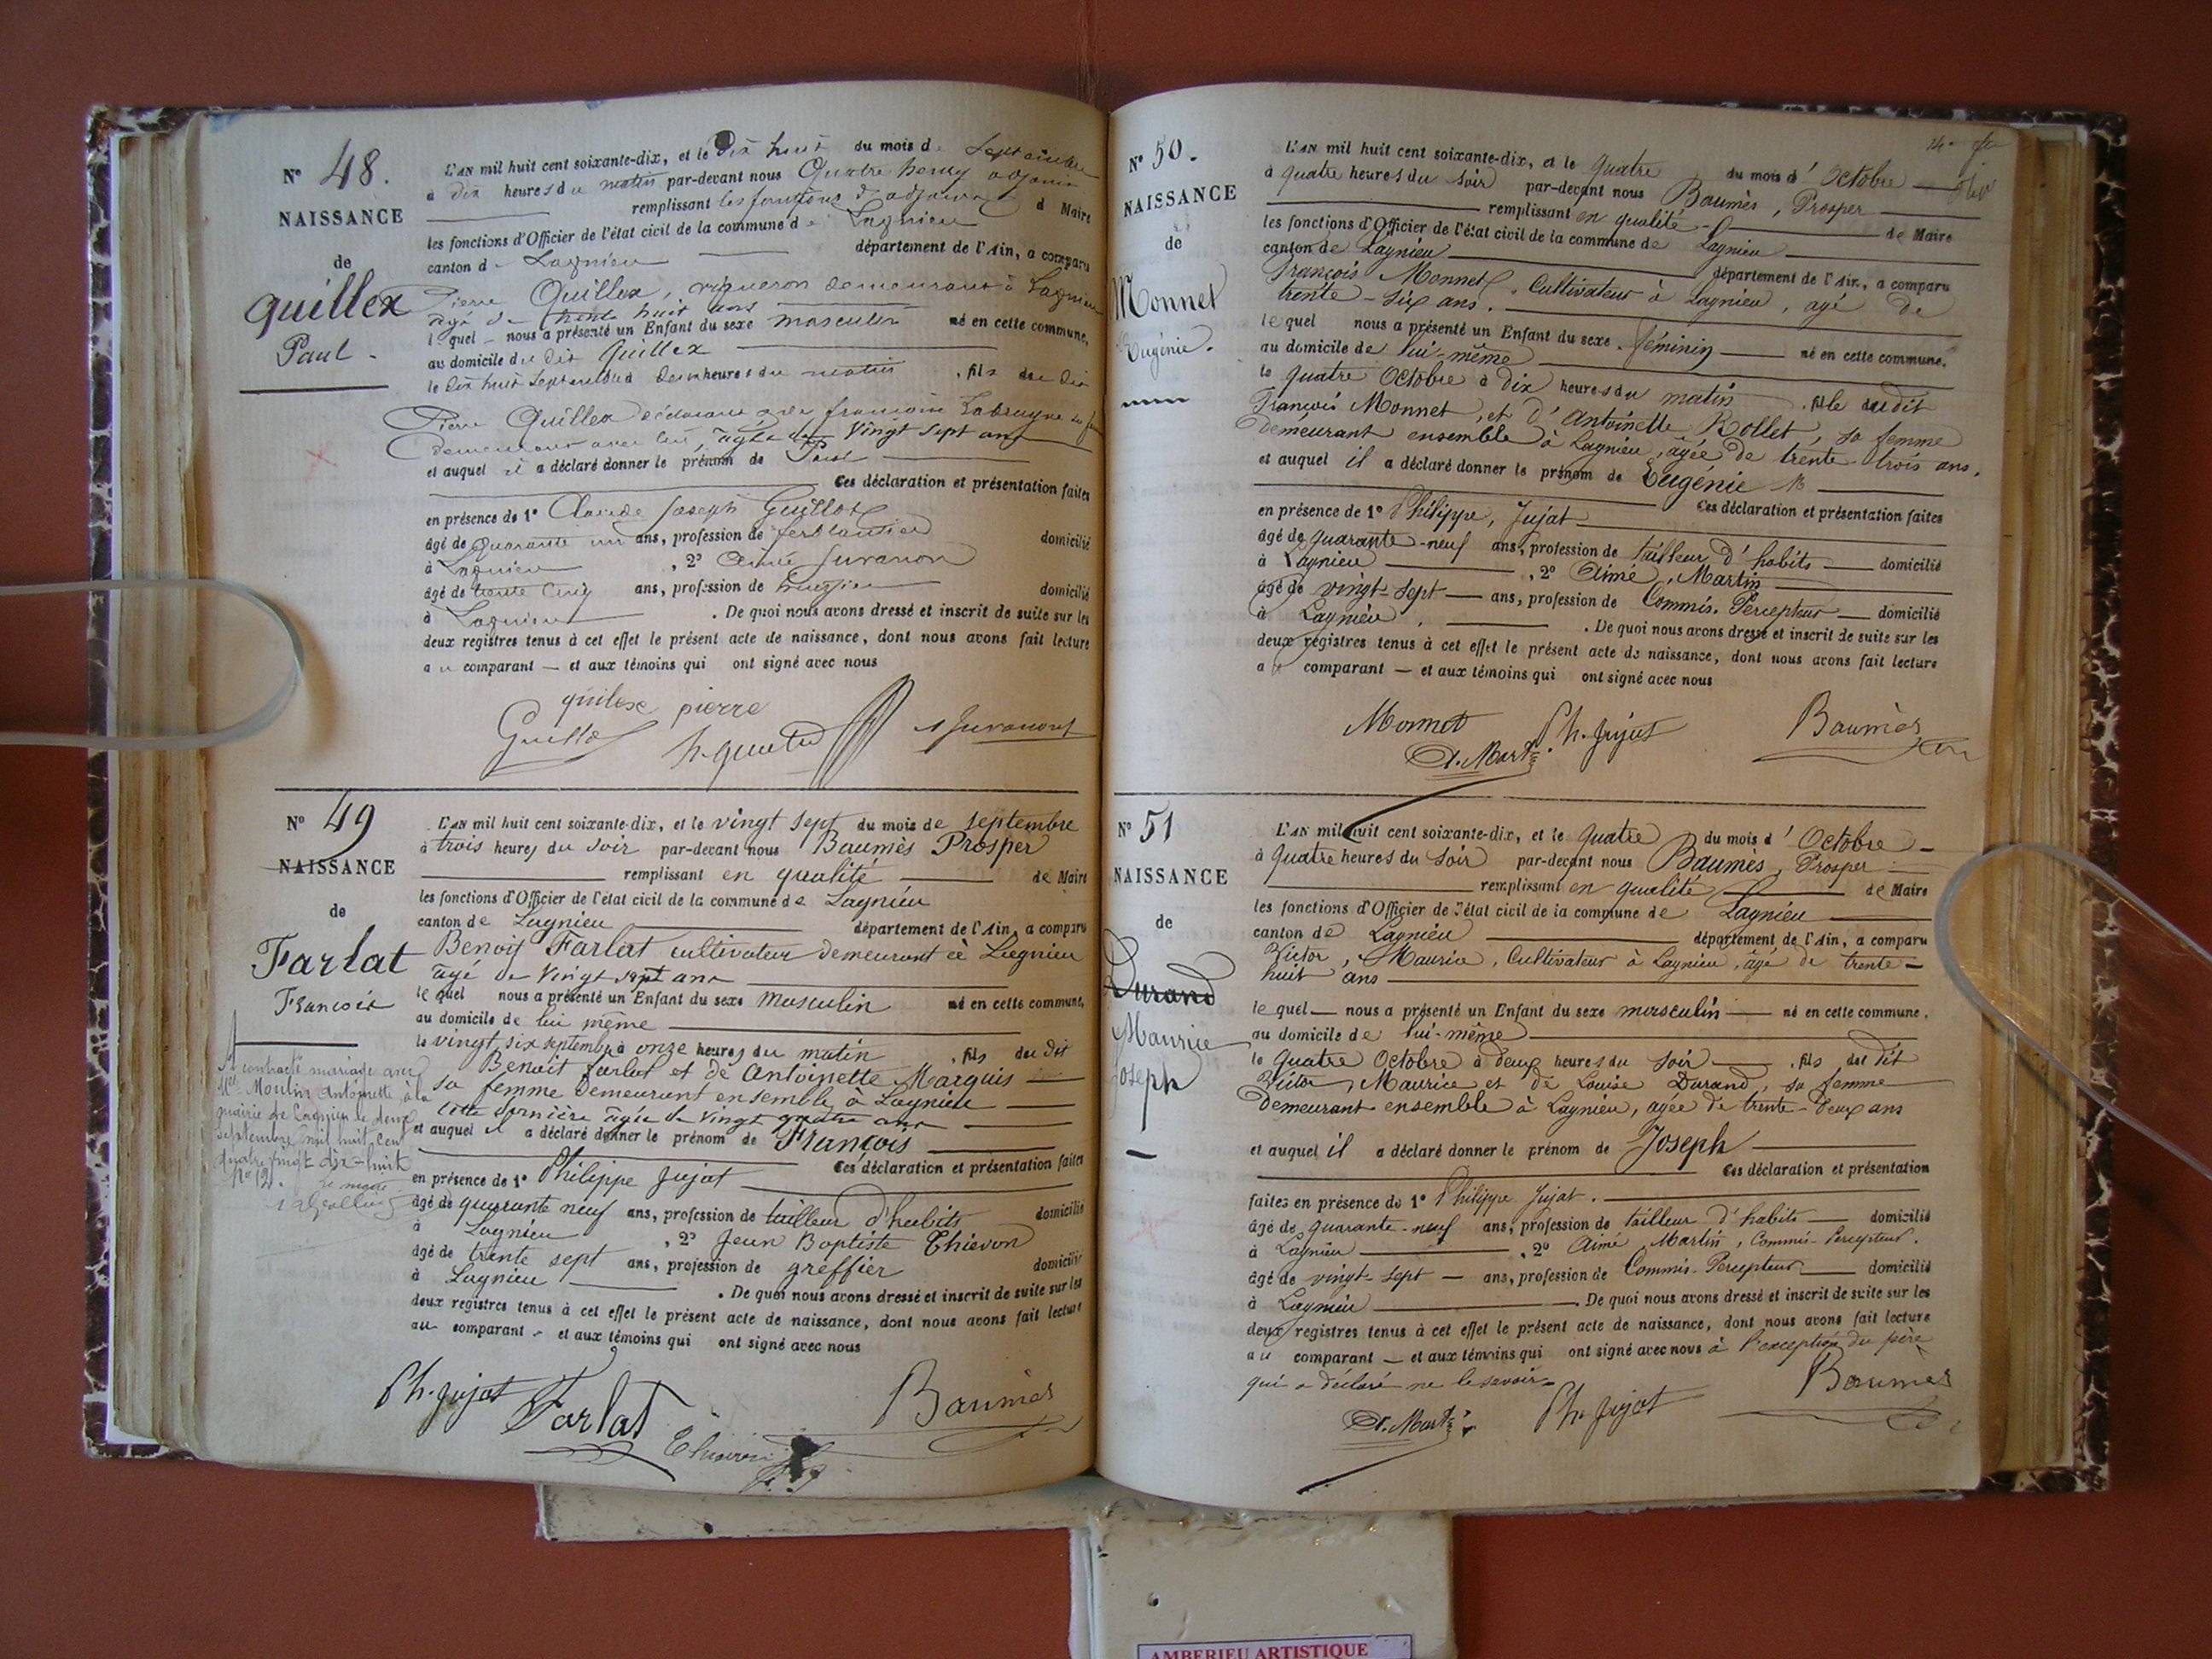 Nº 48.
NAISSANCE
de
Quillex
Paul -
L'AN mil huit cent soixante-dix, et le dix huit du mois de Septembre
à dix heures du matin par-devant nous Quatre henry adjoint
remplissant les fonctions d'adjoint d Maire
les fonctions d'Officier de l'état civil de la commune de Lagnieu
canton de Lagnieu département de l'Ain, a comparu
Pierre Quillex, vigneron demeurant à Lagnieu
agé de trente huit ans
lequel nous a présenté un Enfant du sexe masculin né en cette commune,
au domicile du dit Quillex
le dix huit Septembre à deux heures du matin , fils du dit
Pierre Quillex déclarant et de françoise Labruyere sa femme
demeurant avec lui, agée de Vingt sept ans
et auquel il a déclaré donner le prénom de Paul
Ces déclaration et présentation faites
en présence de 1º Claude Joseph Guillot
âgé de quarante un ans, profession de ferblantier domicilié
à Lagnieu , 2º Aimé Juvanon
âgé de trente cinq ans, profession de huissier domicilié
à Lagnieu . De quoi nous avons dressé et inscrit de suite sur les
deux registres tenus à cet effet le présent acte de naissance, dont nous avons fait lecture
au comparant — et aux témoins qui ont signé avec nous
quilexe pierre
Guillot h. quatre A Juvanon
Nº 49
NAISSANCE
de
Farlat
François
A contracté mariage avec
Mlle Moulin Antoinette, à la
mairie de Lagnieu le deux
Septembre mil huit cent
quatre vingt dix-huit
Nº 12.
Le maire
L'AN mil huit cent soixante-dix, et le vingt sept du mois de septembre
à trois heures du soir par-devant nous Baumès Prosper
remplissant en qualité de Maire
les fonctions d'Officier de l'état civil de la commune de Lagnieu
canton de Lagnieu département de l'Ain, a comparu
Benoit Farlat cultivateur demeurant à Lagnieu
âgé de vingt sept ans
lequel nous a présenté un Enfant du sexe masculin né en cette commune,
au domicile de lui même
le vingt six septembre à onze heures du matin , fils du dit
Benoit Farlat et de Antoinette Marquis
sa femme demeurant ensemble à Lagnieu
cette dernière âgée de vingt quatre ans
et auquel il a déclaré donner le prénom de François
Ces déclaration et présentation faites
en présence de 1º Philippe Jujat
âgé de quarante neuf ans, profession de tailleur d'habits domicilié
à Lagnieu , 2º Jean Baptiste Thievon
âgé de trente sept ans, profession de greffier domicilié
à Lagnieu . De quoi nous avons dressé et inscrit de suite sur les
deux registres tenus à cet effet le présent acte de naissance, dont nous avons fait lecture
au comparant - et aux témoins qui ont signé avec nous
Ph. Jujat Farlat Thievon Baumès
Nº 50.
NAISSANCE
de
Monnet
Eugénie.
L'AN mil huit cent soixante-dix, et le quatre du mois d'Octobre
à quatre heures du soir par-devant nous Baumès, Prosper
remplissant en qualité de Maire
les fonctions d'Officier de l'état civil de la commune de Lagnieu
canton de Lagnieu département de l'Ain, a comparu
François Monnet, Cultivateur à Lagnieu, agé de
trente-six ans.
lequel nous a présenté un Enfant du sexe féminin né en cette commune,
au domicile de lui-même
le quatre Octobre à dix heures du matin , fille du dit
François Monnet, et d'Antoinette Rollet, sa femme
demeurant ensemble à Lagnieu, âgée de trente-trois ans.
et auquel il a déclaré donner le prénom de Eugénie
Ces déclaration et présentation faites
en présence de 1º Philippe, Jujat
âgé de quarante-neuf ans, profession de tailleur d'habits domicilié
à Lagnieu , 2º Aimé, Martin
âgé de vingt-sept ans, profession de Commis-Percepteur domicilié
à Lagnieu . De quoi nous avons dressé et inscrit de suite sur les
deux registres tenus à cet effet le présent acte de naissance, dont nous avons fait lecture
au comparant — et aux témoins qui ont signé avec nous
Monnet Ph. Jujat Baumès
A. Martin
Nº 51
NAISSANCE
de
Durand
Maurice
Joseph
L'AN mil huit cent soixante-dix, et le quatre du mois d'Octobre
à quatre heures du soir par-devant nous Baumès, Prosper
remplissant en qualité de Maire
les fonctions d'Officier de l'état civil de la commune de Lagnieu
canton de Lagnieu département de l'Ain, a comparu
Victor, Maurice, Cultivateur à Lagnieu, âgé de trente-
huit ans
lequel — nous a présenté un Enfant du sexe masculin né en cette commune,
au domicile de lui-même
le quatre Octobre à deux heures du soir , fils du dit
Victor, Maurice et de Louise Durand, sa femme
demeurant ensemble à Lagnieu, agée de trente-deux ans
et auquel il a déclaré donner le prénom de Joseph
Ces déclaration et présentation
faites en présence de 1º Philippe Jujat.
âgé de quarante-neuf ans, profession de tailleur d'habits domicilié
à Lagnieu , 2º Aimé, Martin, Commis-Percepteur.
âgé de vingt-sept — ans, profession de Commis-Percepteur domicilié
à Lagnieu . De quoi nous avons dressé et inscrit de suite sur les
deux registres tenus à cet effet le présent acte de naissance, dont nous avons fait lecture
au comparant — et aux témoins qui ont signé avec nous à l'exception du père
qui a déclaré ne le savoir.
A. Martin Ph. Jujat Baumès
AMBERIEU ARTISTIQUE